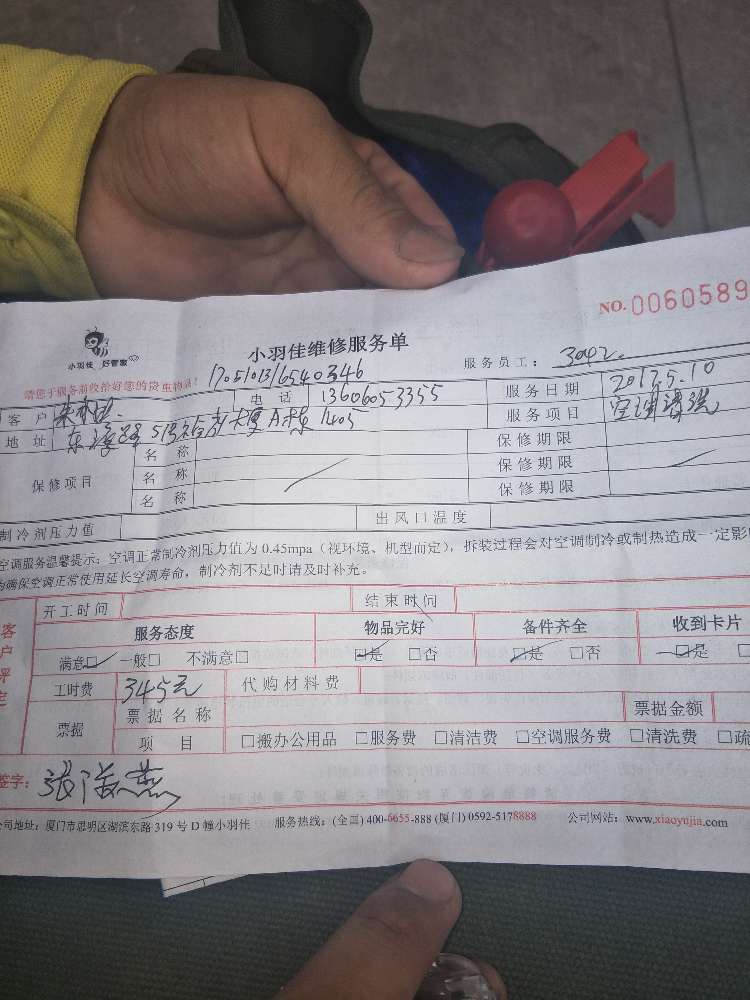 NO. 0060589
小羽佳 好管家
小羽佳维修服务单
服务员工：3042
请您于服务前收拾好您的贵重物品！
17051013116540346
客户 电话 13606053355 服务日期 2017.5.10
地址 5号 大厦A栋1405 服务项目 空调清洗
保修项目 名称 保修期限
名称 保修期限
名称 保修期限
制冷剂压力值 出风口温度
空调服务温馨提示：空调正常制冷剂压力值为0.45mpa（视环境、机型而定），拆装过程会对空调制冷或制热造成一定影
为确保空调正常使用延长空调寿命，制冷剂不足时请及时补充。
客户评定
开工时间 结束时间
服务态度 物品完好 备件齐全 收到卡片
满意☑ 一般□ 不满意□ ☑是 □否 ☑是 □否 ☑是 □
工时费 345元 代购材料费
票据 票据名称 票据金额
项目 □搬办公用品 □服务费 □清洁费 □空调服务费 □清洗费 □疏
签字：
公司地址：厦门市思明区湖滨东路 319 号 D 幢小羽佳 服务热线：(全国) 400-6655-888 (厦门) 0592-5178888 公司网站：www.xiaoyujia.com